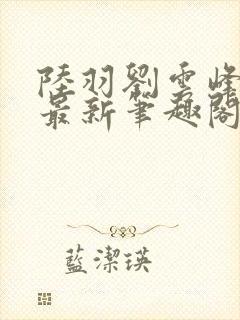 陸羽劉雲峰
最新筆趣閣
藍潔瑛